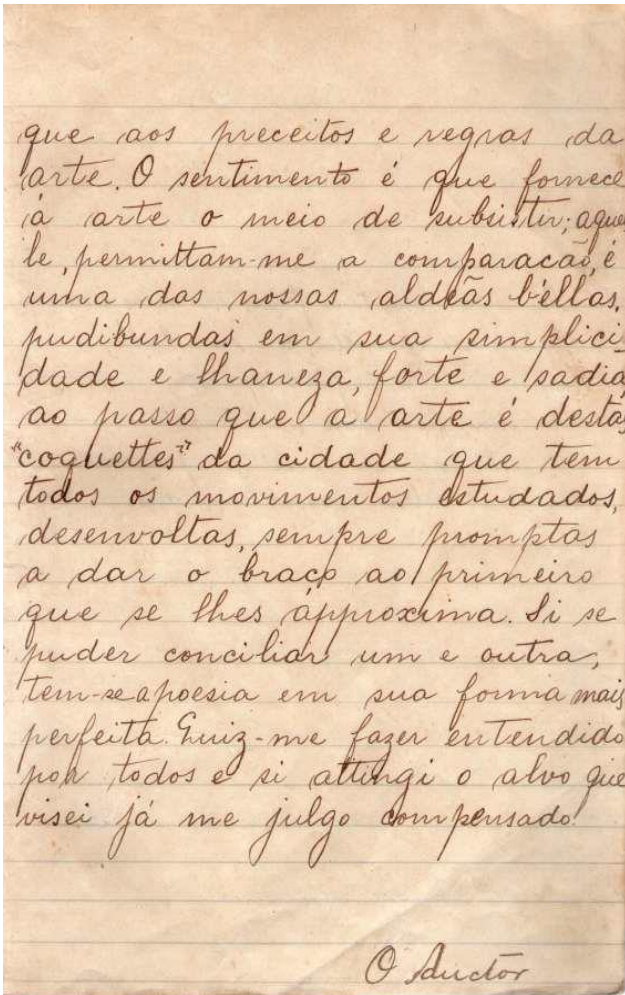 que aos preceitos e regras da
arte. O sentimento é que fornece
á arte o meio de subsistir; aquel
le, permittam-me a comparacão, é
uma das nossas aldeãs béllas,
pudibundas em sua simplici
dade e lhaneza, forte e sadia
ao passo que a arte é destas
"coquettes" da cidade que tem
todos os movimentos estudados,
desenvoltas, sempre promptas
a dar o braço ao primeiro
que se lhes approxima. Si se
puder conciliar um e outra,
tem-se a poesia em sua forma mais
perfeita. Quiz-me fazer entendido
por todos e si attingi o alvo que
visei já me julgo compensado.
O Auctor